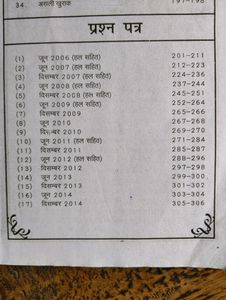 34. असली खुराक 197-198
प्रश्न पत्र
(1) जून 2006 (हल सहित) 201-211
(2) जून 2007 (हल सहित) 212-223
(3) दिसम्बर 2007 (हल सहित) 224-236
(4) जून 2008 (हल सहित) 237-244
(5) दिसम्बर 2008 (हल सहित) 245-251
(6) जून 2009 (हल सहित) 252-264
(7) दिसम्बर 2009 265-266
(8) जून 2010 267-268
(9) दिसम्बर 2010 269-270
(10) जून 2011 (हल सहित) 271-284
(11) दिसम्बर 2011 285-287
(12) जून 2012 (हल सहित) 288-296
(13) दिसम्बर 2012 297-298
(14) जून 2013 299-300
(15) दिसम्बर 2013 301-302
(16) जून 2014 303-304
(17) दिसम्बर 2014 305-306